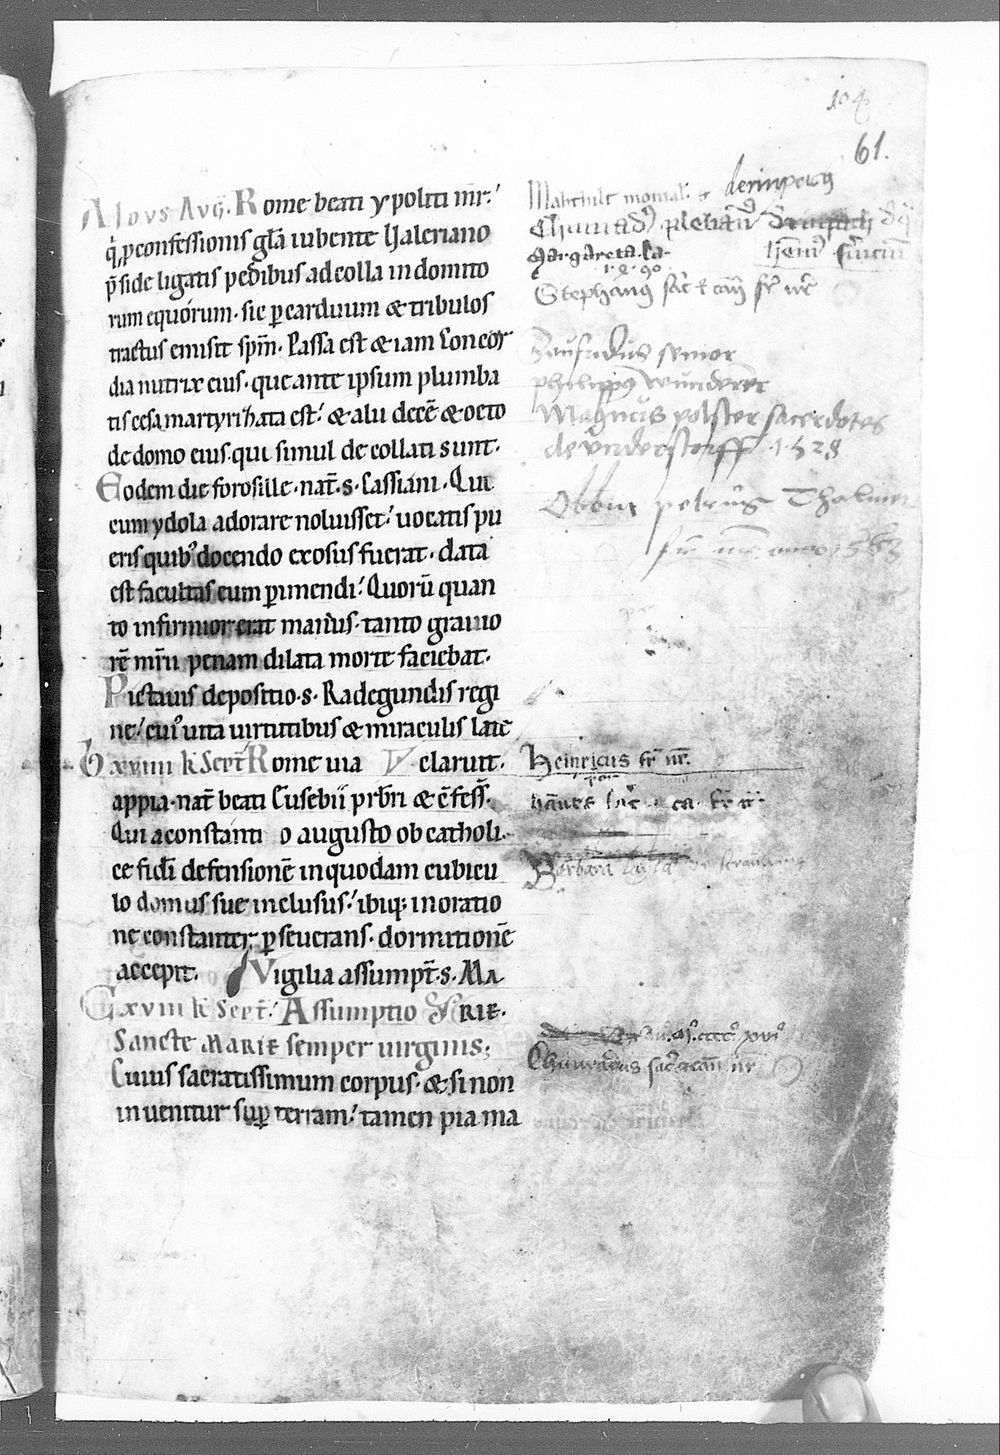 104
61.
A Idvs Avg. Rome beati ypoliti mr̄.
q̇ p confessionis gl̄a iubente Ualeriano
p̄side ligatis pedibus ad colla indomito
rum equorum · sic p carduum & tribulos
tractus emisit spm̄. Passa est & iam Concor
dia nutrix eius · que ante ipsum plumba
tis cesa martyrizata est. & alii decē & octo
de domo eius · qui simul decollati sunt.
Eodem die forosille · nat̄ · s · Cassiani · Qui
cum ydola adorare noluisset. uocatis pu
eris quib; docendo exosus fuerat · data
est facultas eum pimendi. Quorū quan
to infirmior erat manus · tanto grauio
rē mr̄ii penam dilata morte faciebat.
Pictauis depositio · s · Radegundis regi
ne. cui; uita uirtutibus & miraculis late
B xviiii k Sept̄ Rome uia claruit.
appia · nat̄ beati Eusebii prb̄ri & c̄fess̄.
Qui a constanti o augusto ob catholi
ce fidi defensionē in quodam cubicu
lo domus sue inclusus. ibiq; in oratio
ne constanter pseuerans · dormitionē
accepit. Vigilia assumpt̄ · s · Ma
C xviii k Sept̄. Assumptio rie.
Sancte Marie semper uirginis.
Cuius sacratissimum corpus · & si non
inuenitur sup terram. tamen pia ma
Mahthilt monial.
Chunrad; pleban;
Margareta la.
1 · 2 · 90
Stephanus sac̄ & can̄ fr̄ nr̄
senior
philippus wunderer
Magnus polster sacerdotes
de understorff · 1528
Obiit petrus Thalmer
fr̄ nr̄ anno 1563
Heinricus fr̄ nr̄.
Barbara
Chunradus sac̄ & can̄ nr̄